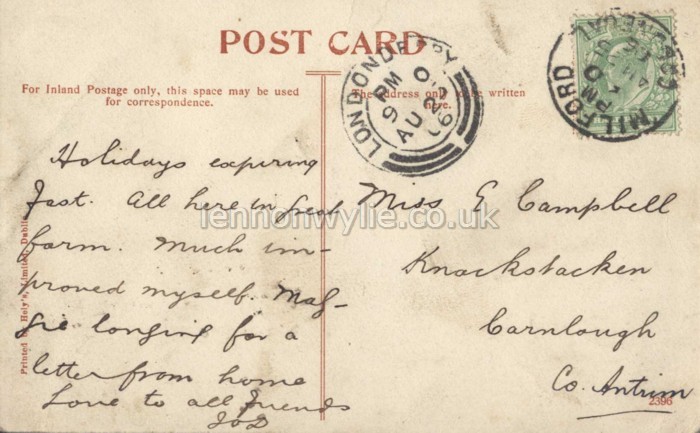 POST CARD
For Inland Postage only, this space may be used
for correspondence.
The address only to be written
here.
LONDONDERRY
9 PM
AU 2
06
MILFORD
CO. DONEGAL
PM
AU
Holidays expiring
fast. All here in first
form. Much im-
proved myself. Mag-
gie longing for a
letter from home
Love to all friends
Miss E Campbell
Knockstacken
Carnlough
Co. Antrim
lennonwylie.co.uk
Printed by Hely's, Limited, Dublin.
2396